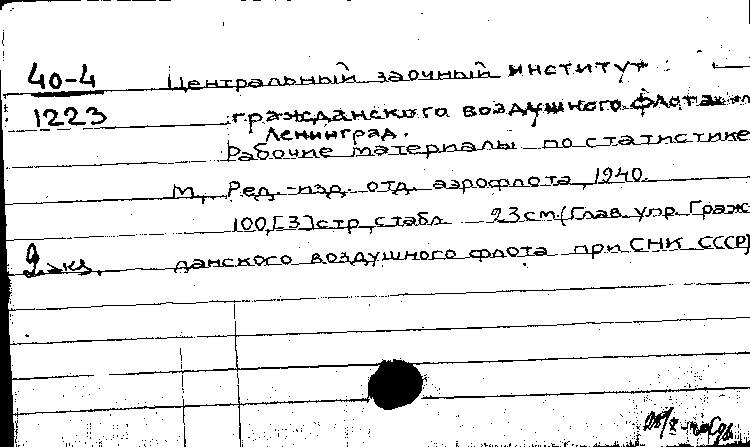 40-4 Центральный заочный институт
1223 гражданского воздушного флота
Ленинград.
Рабочие материалы по статистике
М., Ред.-изд. отд. аэрофлота, 1940.
100,[3]стр., с табл. 23 см. (Глав. упр. Граж-
2 экз. данского воздушного флота при СНК СССР)